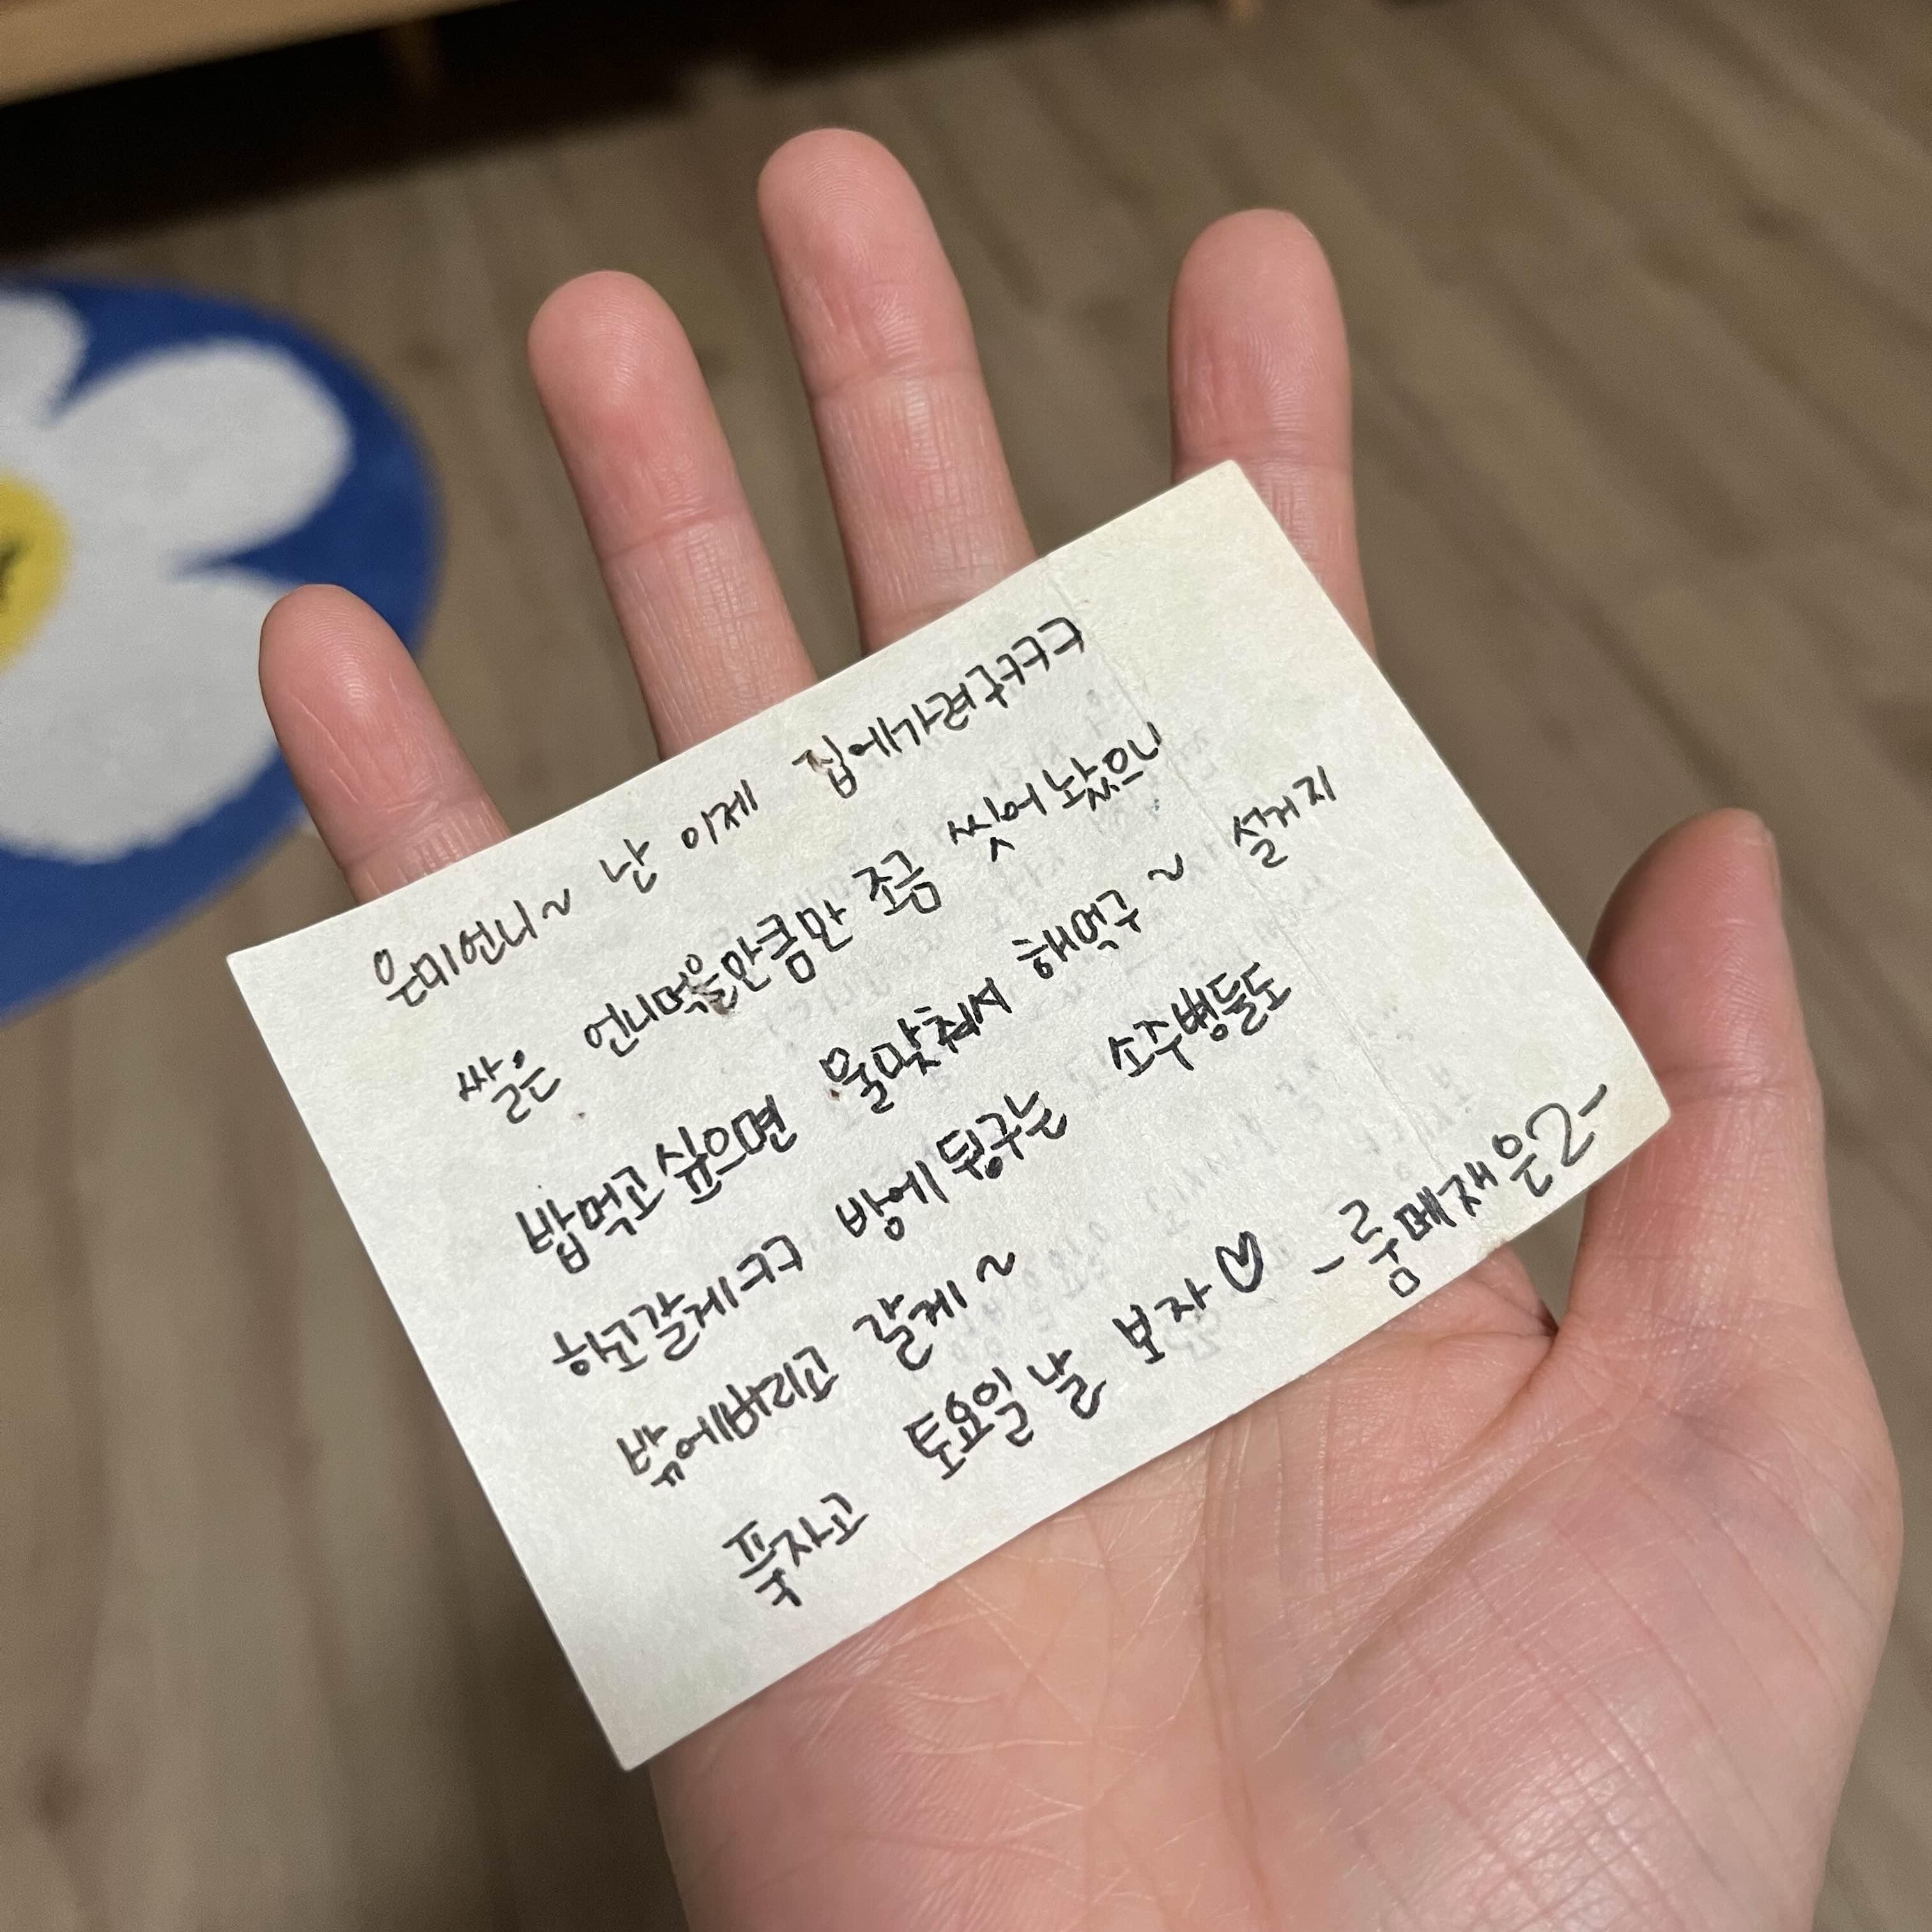 은미언니~ 난 이제 집에가려구ㅋㅋㅋ
쌀은 언니먹을만큼만 조금 씻어놨으니
밥먹고싶으면 물맞춰서 해먹구~ 설거지
하고갈게ㅋㅋ 방에 뒹구는 소주병들도
밖에버리고 갈게~
푹자고 토요일날 보자♡ -룸메재은2-